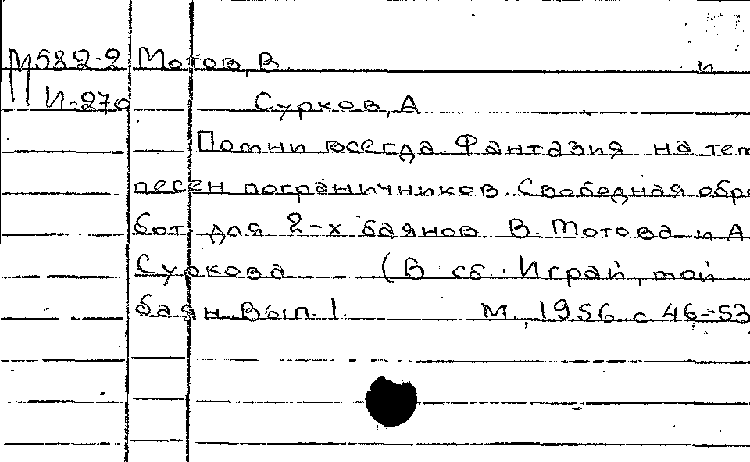 М582-2 Мотов, В. и
И-270 Сурков, А
Помни всегда. Фантазия на тем
песен пограничников. Свободная обра
бот. для 2-х баянов В. Мотова и А.
Суркова (В сб. Играй, мой
баян. Вып. 1. М., 1956. с 46-53